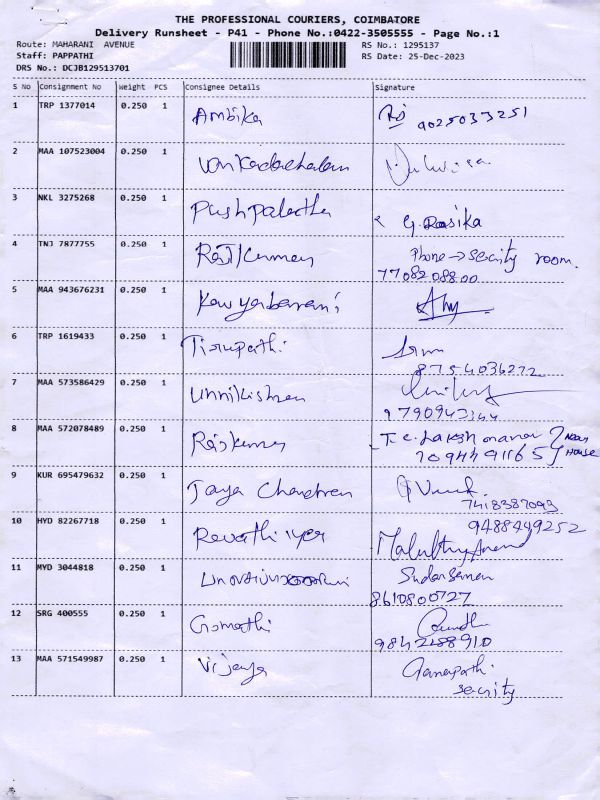 THE PROFESSIONAL COURIERS, COIMBATORE
Delivery Runsheet - P41 - Phone No.:0422-3505555 - Page No.:1
Route: MAHARANI AVENUE RS No.: 1295137
Staff: PAPPATHI RS Date: 25-Dec-2023
DRS No.: DCJB129513701
S No Consignment No Weight PCS Consignee Details Signature
1 TRP 1377014 0.250 1 Ambika
9025033251
2 MAA 107523004 0.250 1 Vankadachalam
3 NKL 3275268 0.250 1 Pushpalatha G. Rasika
4 TNJ 7877755 0.250 1 RajKumar Phone → Secrity room.
7708208800
5 MAA 943676231 0.250 1 Kawyabarani
6 TRP 1619433 0.250 1 Tirupathi
8754036272
7 MAA 573586429 0.250 1 Unnikishnan
9790943144
8 MAA 572078489 0.250 1 Rajkumar T.C. Lakshmanan
7094491165 House
9 KUR 695479632 0.250 1 Jaya Chandren
7418387093
10 HYD 82267718 0.250 1 Revathi iyer 9488449252
11 MYD 3044818 0.250 1 Sudarsanan
8610800727
12 SRG 400555 0.250 1 Gomathi
9842488910
13 MAA 571549987 0.250 1 Vijaya Ganapathi
Secrity